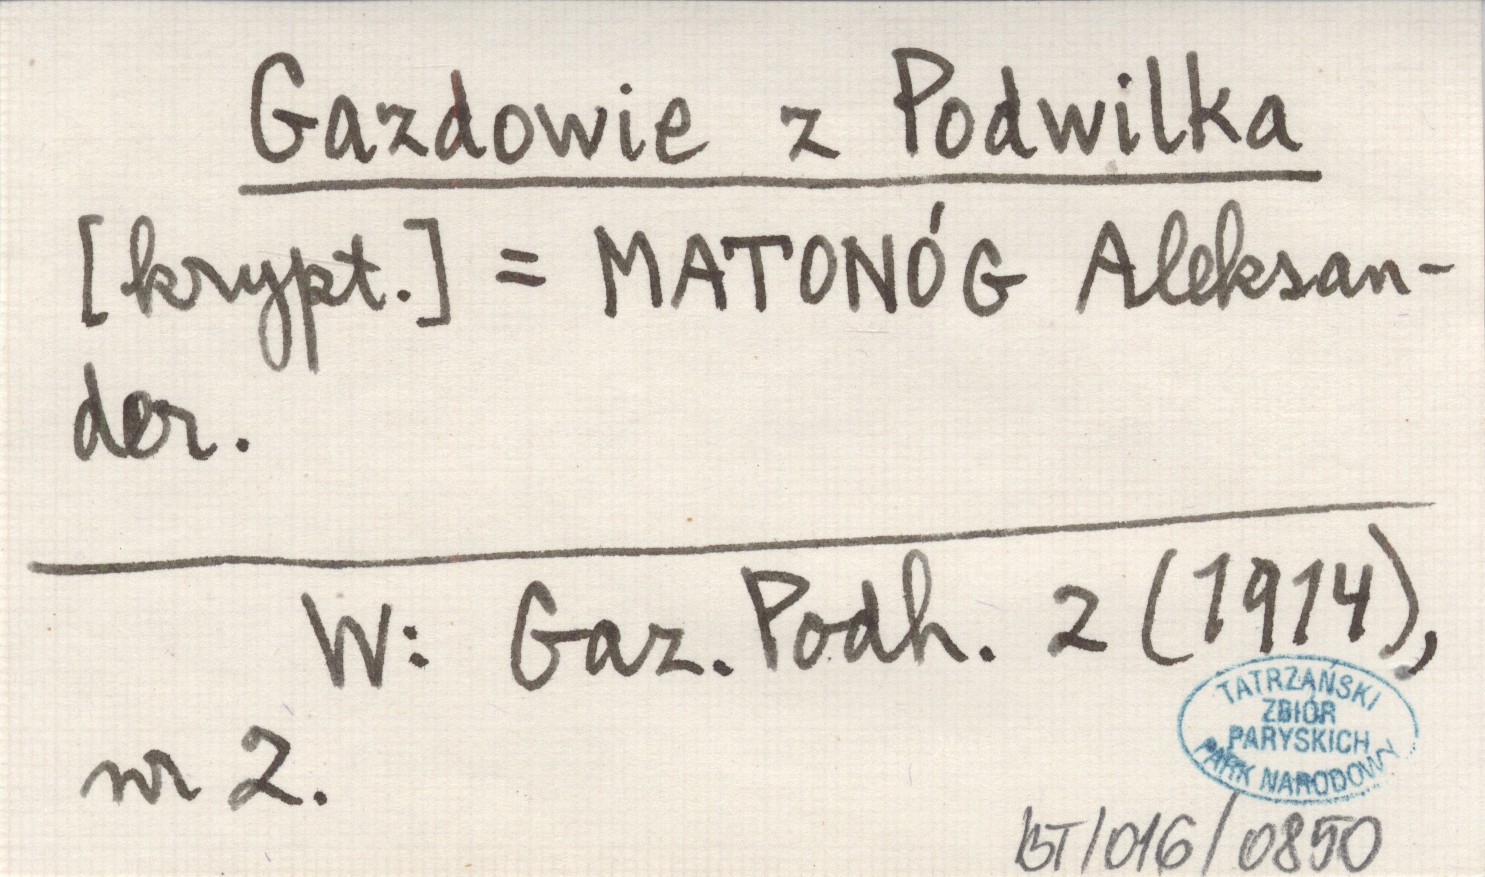 Gazdowie z Podwilka
[krypt.] = MATONÓG Aleksan-
der.
W: Gaz. Podh. 2 (1914),
nr 2.
TATRZAŃSKI
ZBIÓR
PARYSKICH
PARK NARODOWY
BT/016/0850